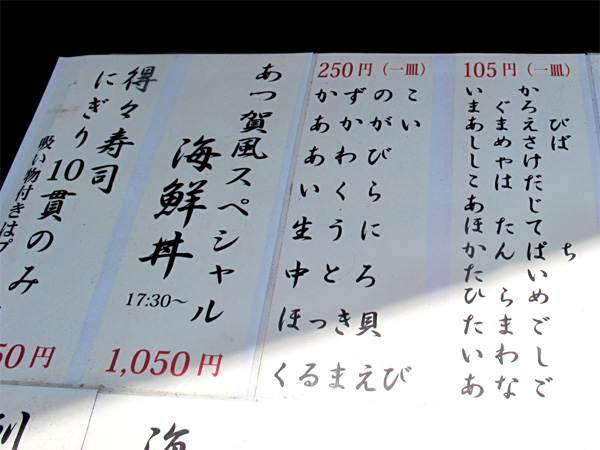 105円（一皿）
いか
まぐろ
あまえび
しめさば
しゃけ
こはだ
あじ
ほたて
かんぱち
たい
ひらめ
たまご
いわし
あなご
250円（一皿）
かずのこ
あかがい
あわび
いくら
生うに
中とろ
ほっき貝
くるまえび
あつ賀風スペシャル
海鮮丼
17:30〜
1,050円
得々寿司
にぎり10貫のみ
吸い物付きはプ
50円